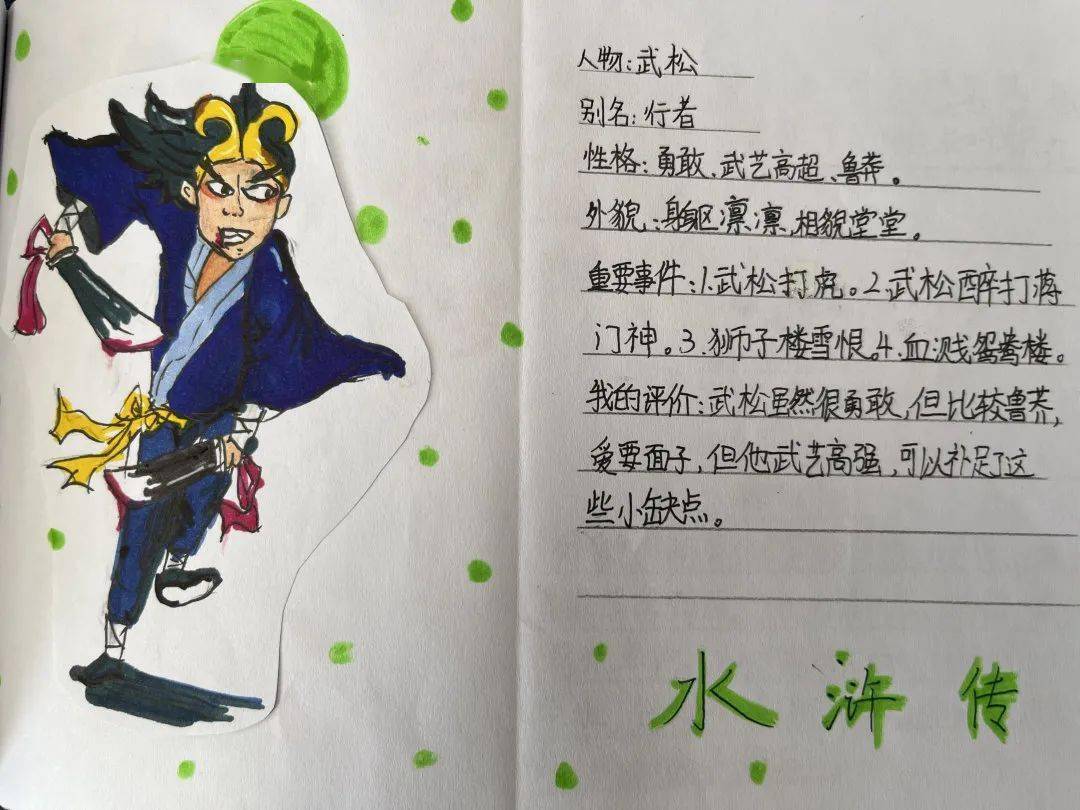 人物：武松
别名：行者
性格：勇敢、武艺高超、鲁莽。
外貌：身躯凛凛，相貌堂堂。
重要事件：1.武松打虎。2.武松醉打蒋
门神。3.狮子楼雪恨。4.血溅鸳鸯楼。
我的评价：武松虽然很勇敢，但比较鲁莽，
爱要面子，但他武艺高强，可以补足了这
些小缺点。
水浒传